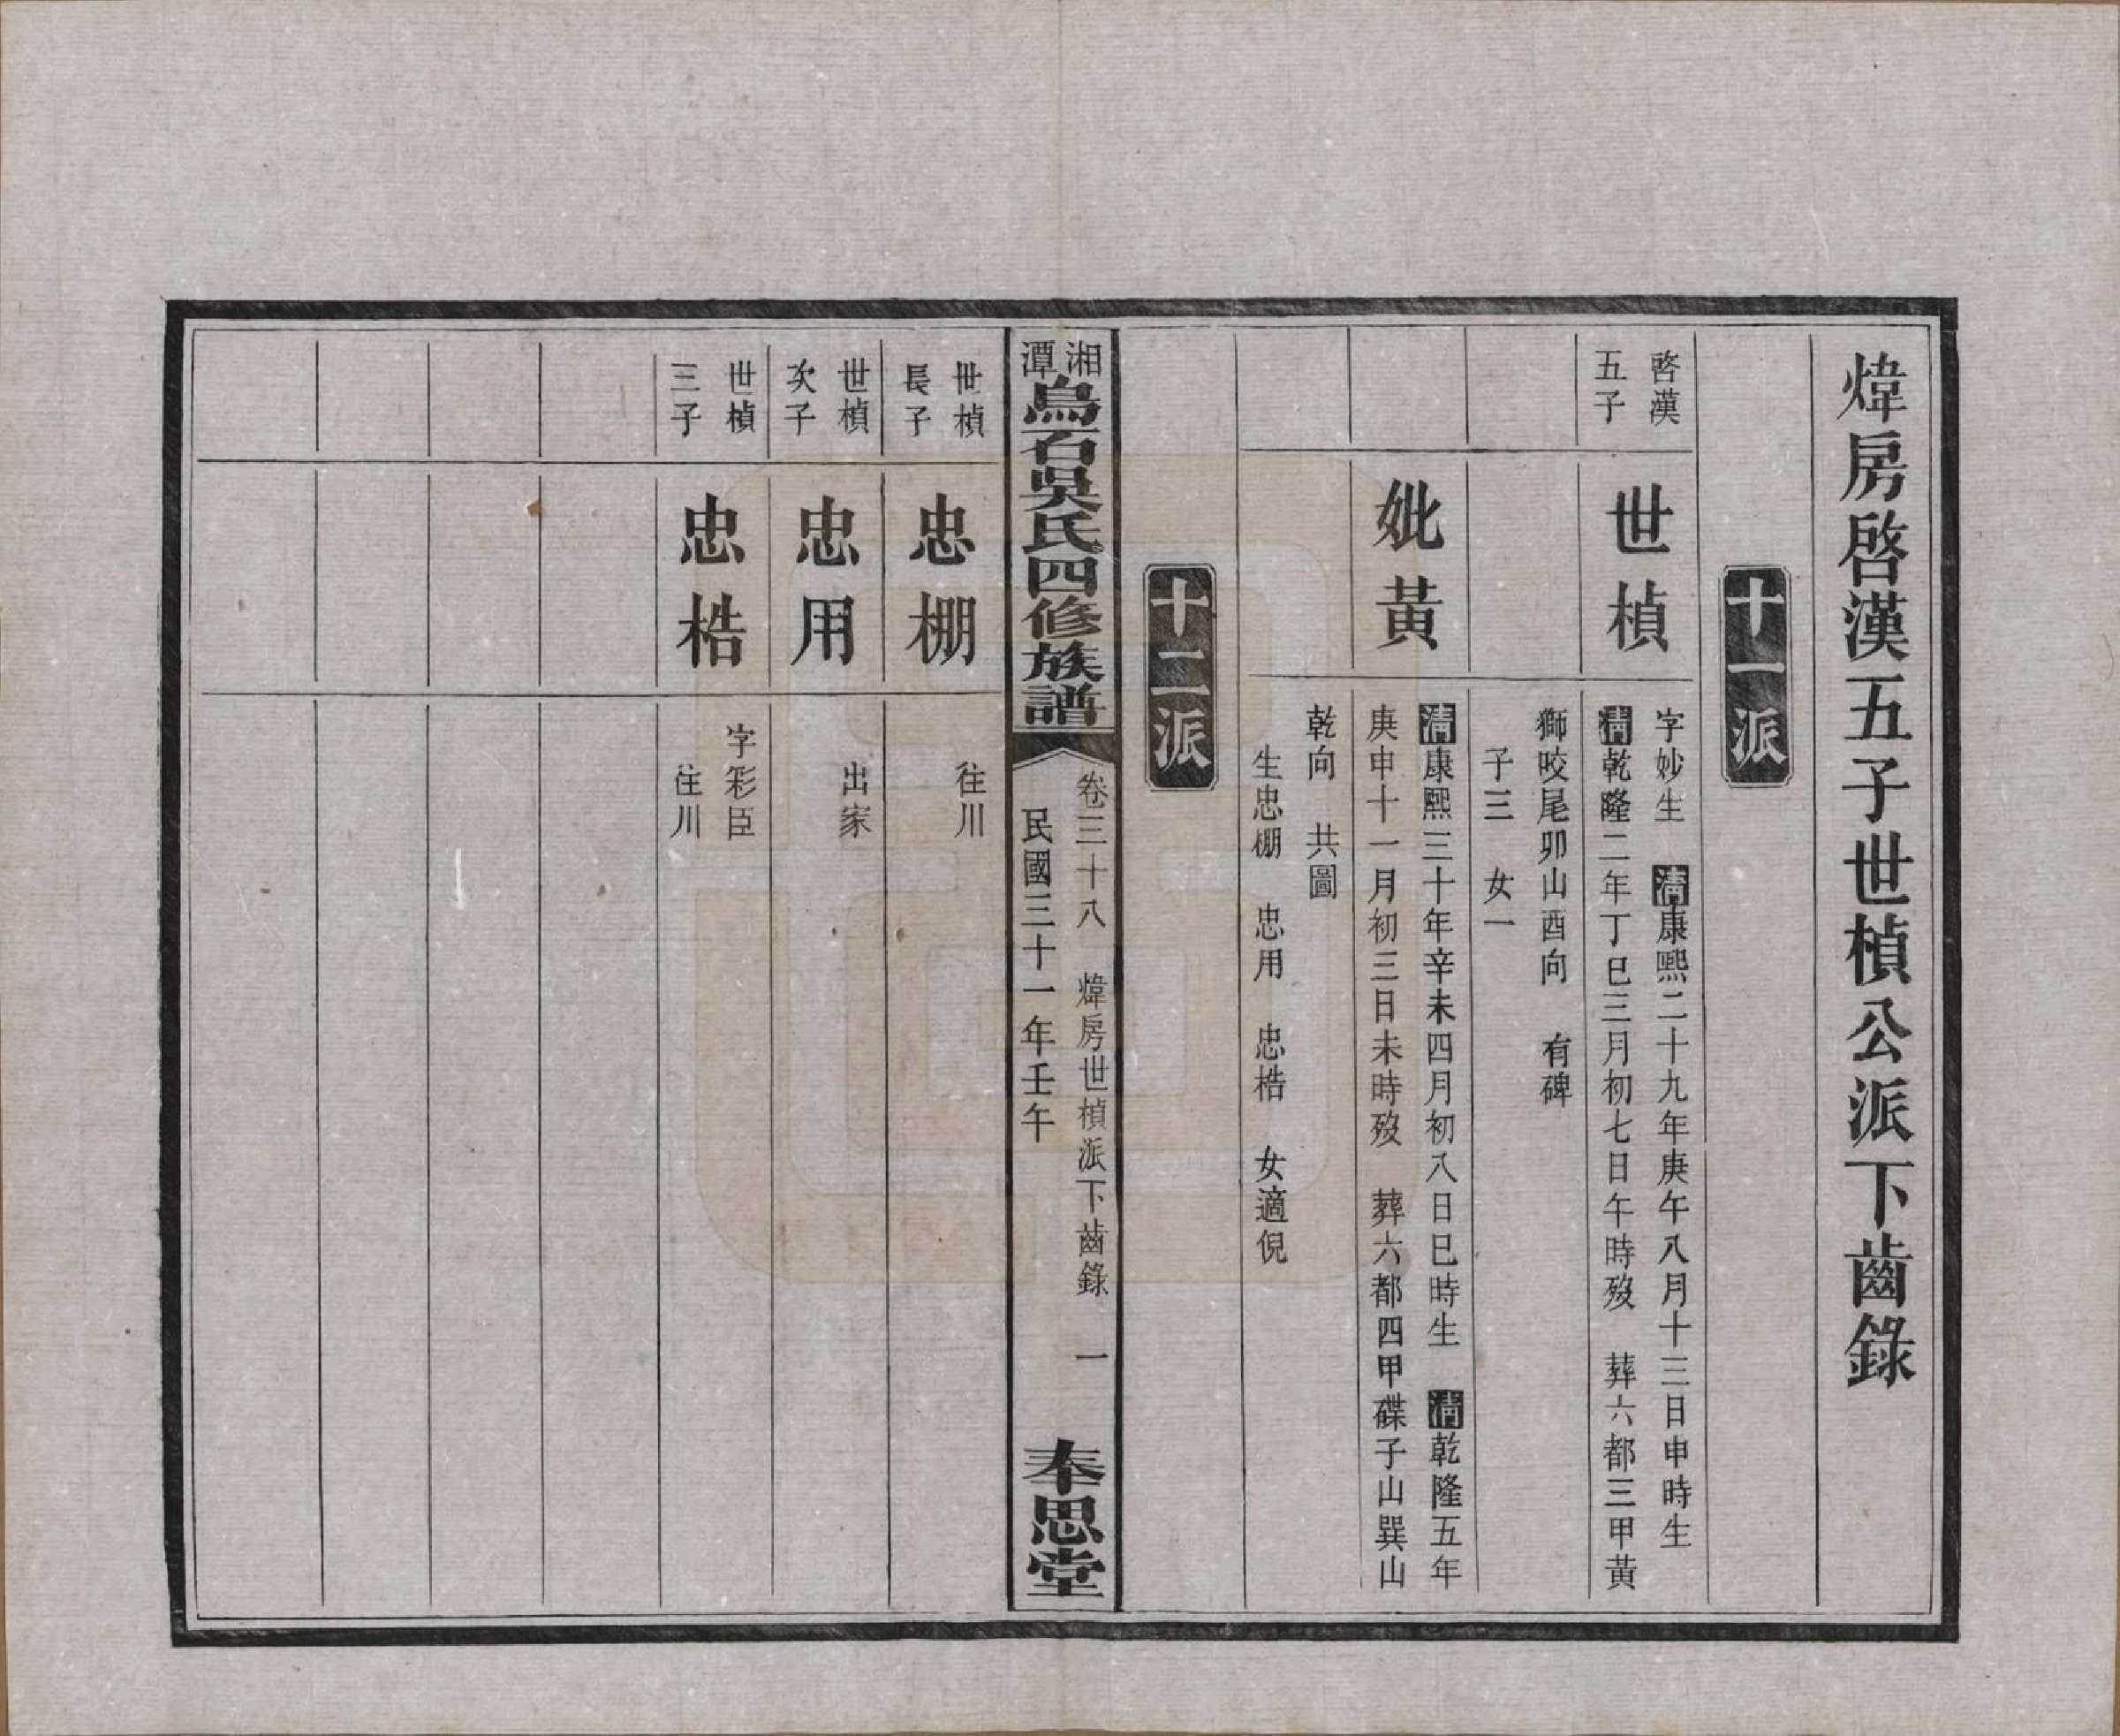 煒房啓漢五子世楨公派下齒錄
十一派
啓漢
五子
世楨
字妙生　清康熙二十九年庚午八月十三日申時生
清乾隆二年丁巳三月初七日午時歿　葬六都三甲黃
獅咬尾卯山酉向　有碑
子三　女一
妣黃
清康熙三十年辛未四月初八日巳時生　清乾隆五年
庚申十一月初三日未時歿　葬六都四甲磔子山巽山
乾向　共圖
生忠棚　忠用　忠梏　女適倪
十二派
湘潭烏石吳氏四修族譜
卷三十八　煒房世楨派下齒錄　一
民國三十一年壬午
奉思堂
世楨
長子
忠棚
往川
世楨
次子
忠用
出家
世楨
三子
忠梏
字彩臣
往川